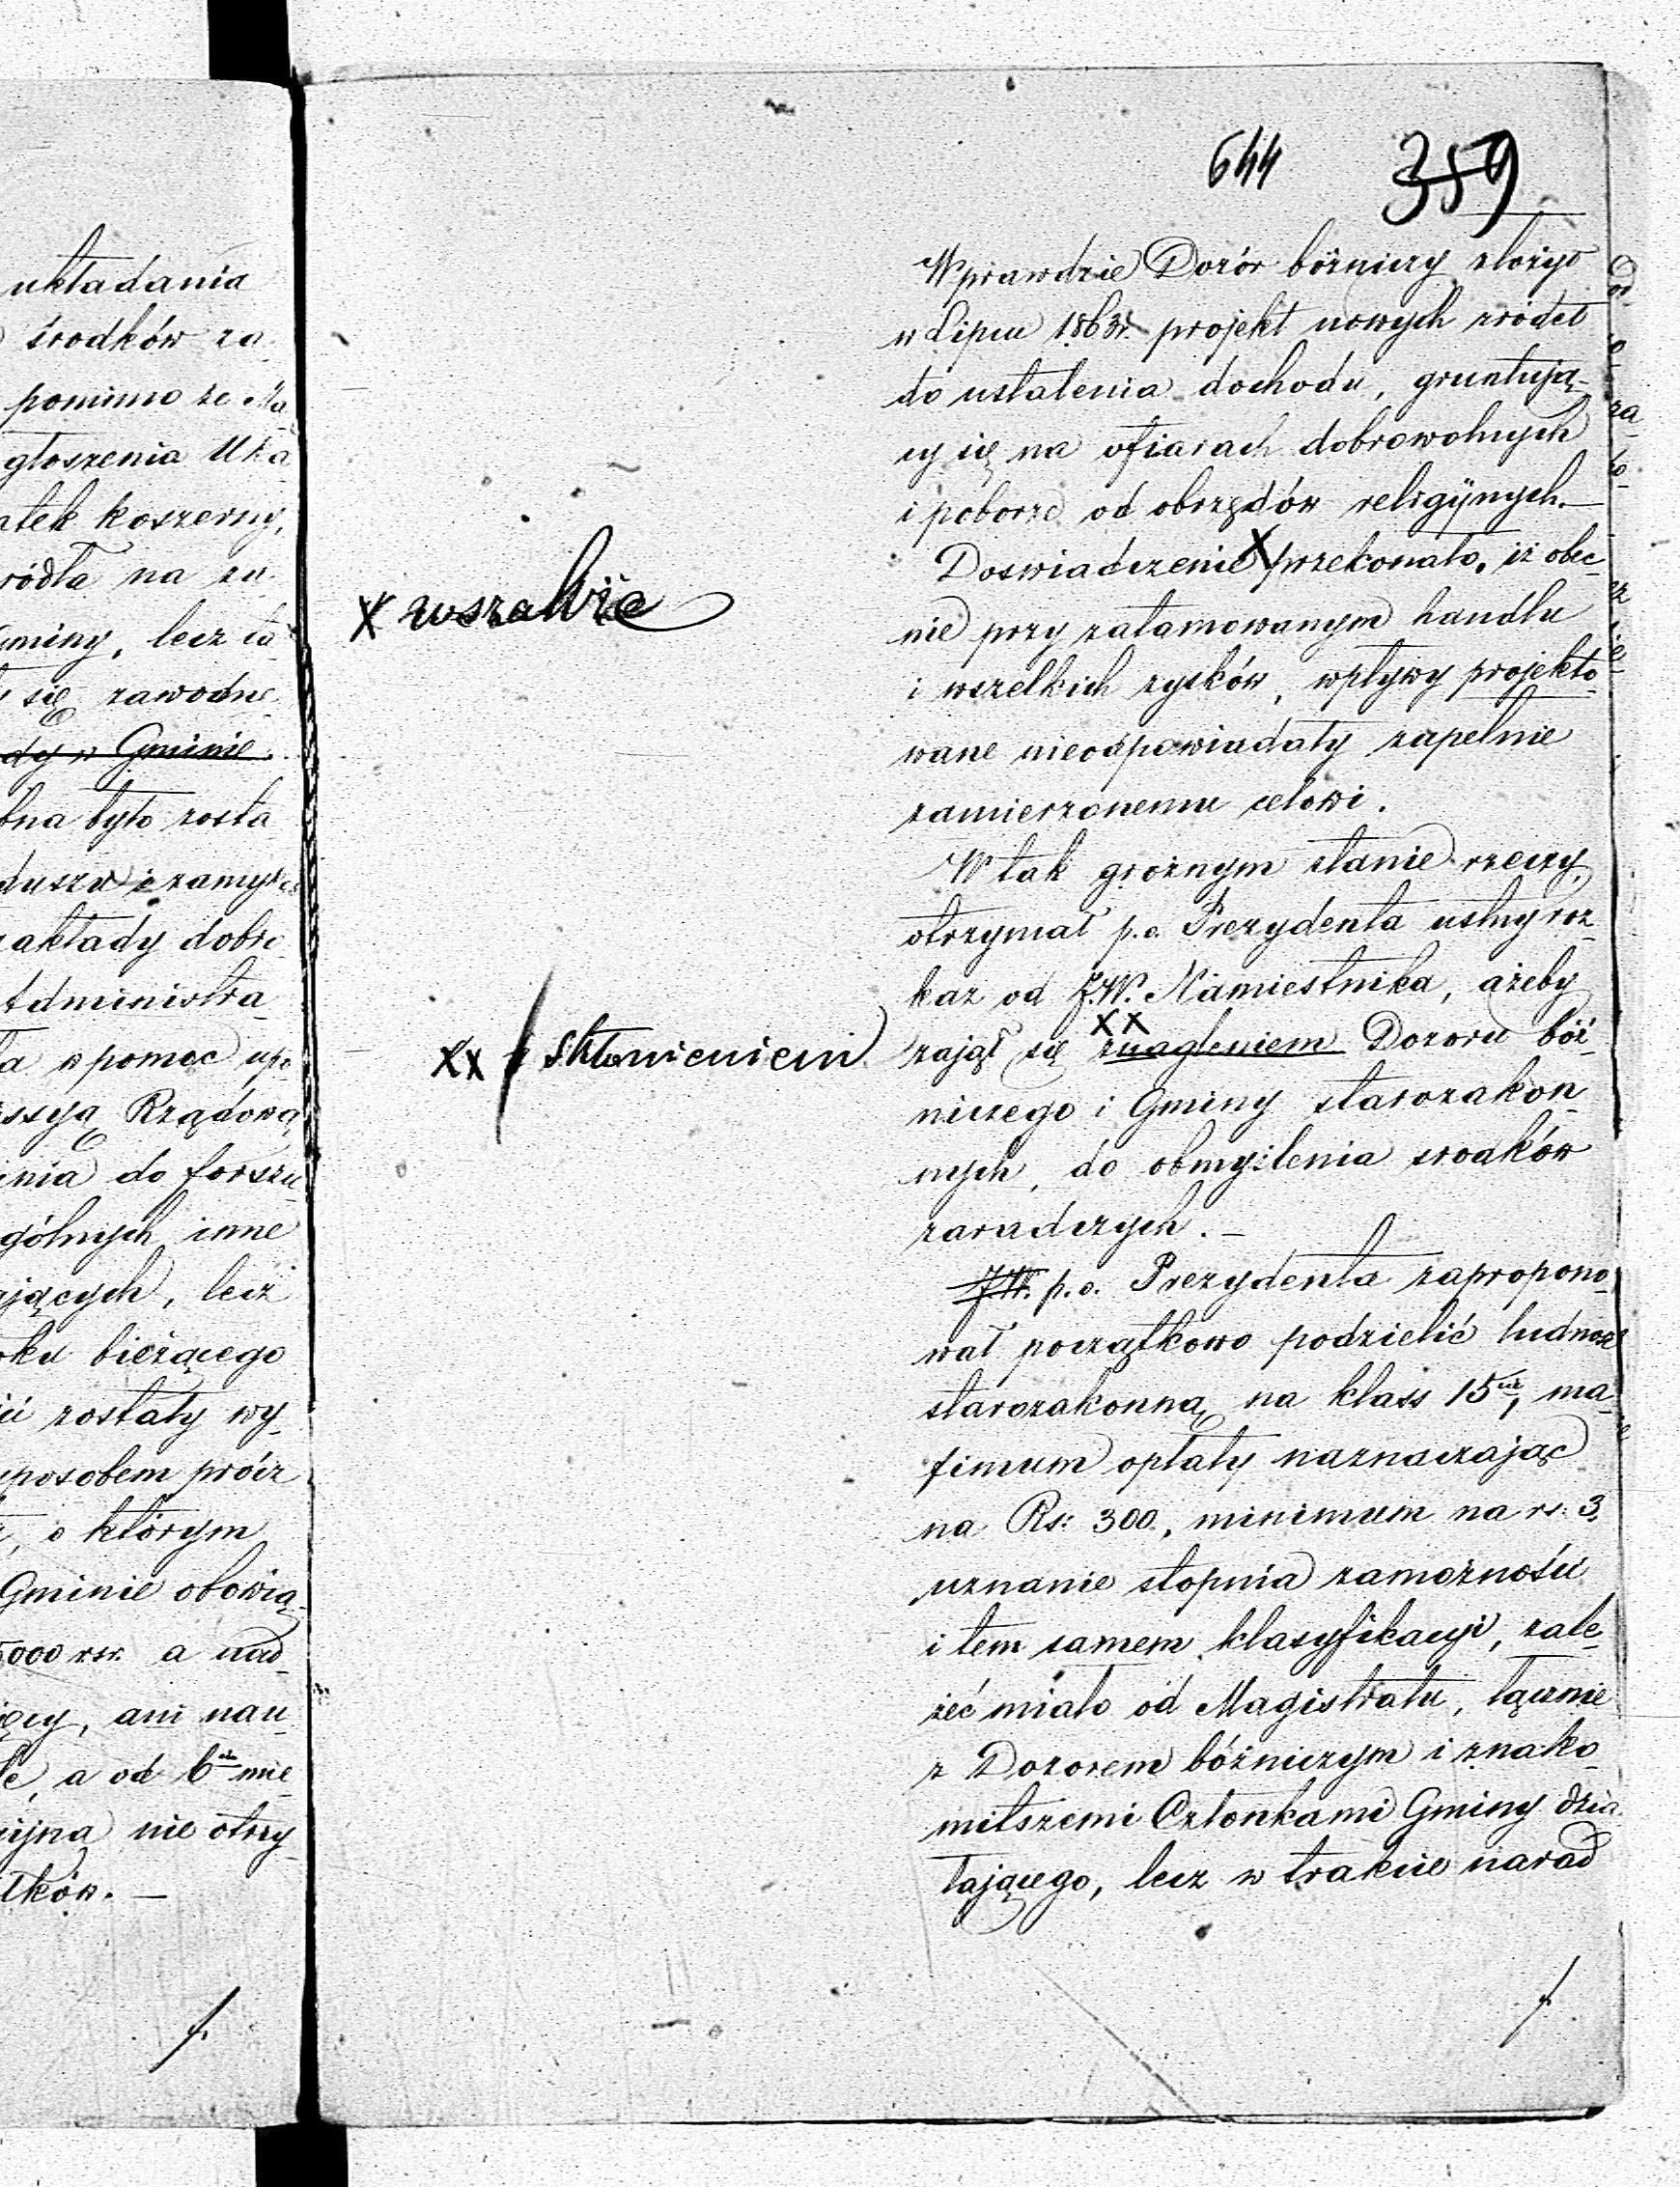 układania
środków za
pomimo że Ma
głoszenia Uka
atek koszerny,
ródła na za
Gminy, lecz ta
się zawodne
dy w Gminie
bna było zosta
duszu i zamyka
zakłady dobro
Administra
ła w pomoc upo
ssyą Rządową
nia do forszu
gólnych inne
ających, lecz
oku bieżącego
ści zostały wy
sposobem prócz
, o którym
Gminie obowią
5000 rsr. a nad
ięcy, ani nau
le, a od 6ciu mie
nie otrzy
tków. —
644 359
Wprawdzie Dozór bóżniczy złożył
w Lipcu 1863r. projekt nowych źródeł
do ustalenia dochodu, gruntują-
cy się na ofiarach dobrowolnych
i poborze od obrzędów religijnych. —
Doswiadczenie X przekonało, iż obec
X wszakże
nie przy zatamowanym handlu
i wszelkich zysków, wpływy projekto
wane nieodpowiadały zupełnie
zamierzonemu celowi.
W tak groźnym stanie rzeczy,
otrzymał p.o. Prezydenta ustny roz
kaz od J.W. Namiestnika, ażeby
XX
zajął się znagleniem Dozoru bóż
XX skłonieniem
niczego i Gminy starozakon
nych, do obmyślenia srodków
zaradczych. —
JW. p.o. Prezydenta zapropono
wał początkowo podzielić ludność
starozakonną na klass 15cie, ma
ximum opłaty naznaczając
na Rs: 300, minimum na rs. 3,
uznanie stopnia zamożności
i tem samem klasyfikacyi, zale
żeć miało od Magistratu, łącznie
z Dozorem bóżniczym i znako
mitszemi Członkami Gminy dzia
łającego, lecz w trakcie narad